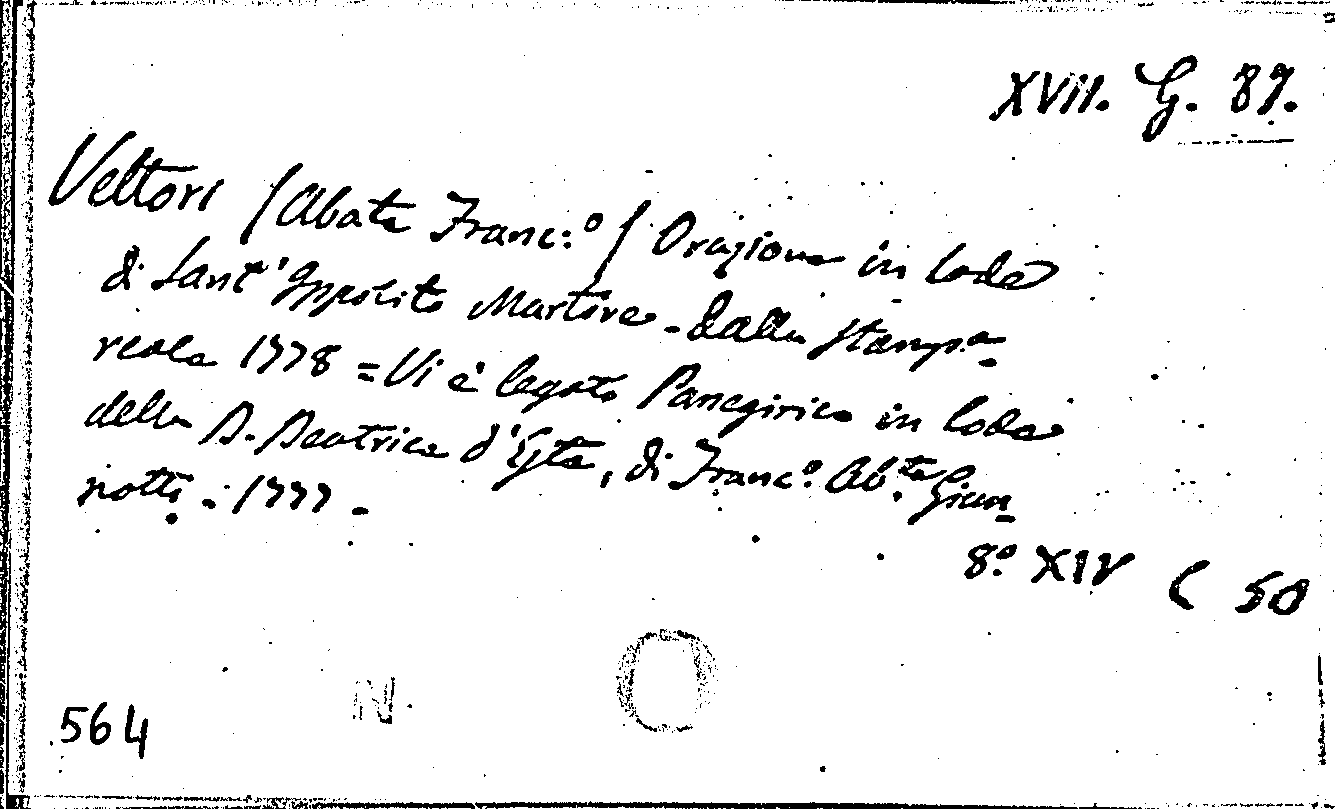 XVII. G. 87.
Vettori /Abate Franc:º/ Orazione in lode
di Sant'Ippolito Martire - Dalla Stamp.ª
reale 1778 = Vi è legato Panegirico in lode
della B. Beatrice d'Este, di Franc.º Ab.te Gian-
notti - 1777 -
8.º XIV C 50
N.
O
564